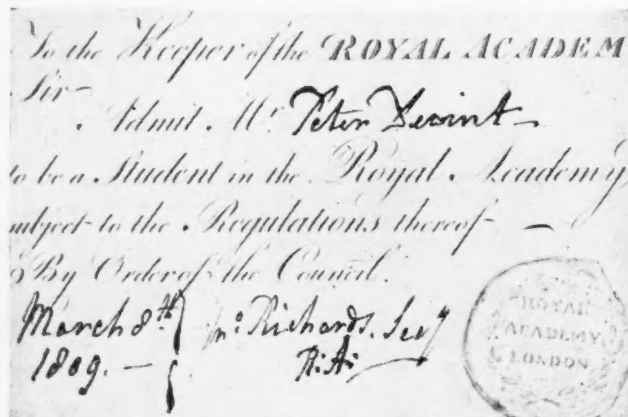 To the Keeper of the ROYAL ACADEM
Sir
Admit Mr. Peter Dewint
to be a Student in the Royal Academy
subject to the Regulations thereof —
By Order of the Council.
March 8th Jno. Richards. Secy
1809. — R: A:
ROYAL
ACADEMY
LONDON